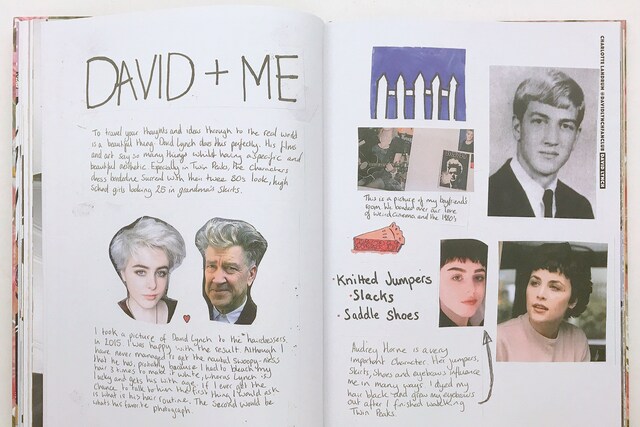 DAVID + ME
To travel your thoughts and ideas through to the real world
is a beautiful thing. David Lynch does this perfectly. His films
and art say so many things whilst having a specific and
beautiful aesthetic. Especially in Twin Peaks, the characters
dress borderline surreal with their twee 50s look, high
school girls looking 25 in grandma's skirts.
I took a picture of David Lynch to the hairdressers
in 2015. I was happy with the result. Although I
have never managed to get the natural swoopy-ness
that he has, probably because I had to bleach my
hair 3 times to make it white, whereas Lynch is
lucky and gets his with age. If I ever get the
chance to talk to him the first thing I would ask
is what is his hair routine. The second would be
whats his favourite photograph.
This is a picture of my boyfriends
room. We bonded over our love
of weird cinema and the 1980s
• Knitted Jumpers
• Slacks
• Saddle Shoes
Audrey Horne is a very
important character. Her jumpers,
skirts, shoes and eyebrows influence
me in many ways. I dyed my
hair black and grew my eyebrows
out after I finished watching
Twin Peaks.
CHARLOTTE LANDRUM @DAVIDLYNCHFANCLUB DAVID LYNCH